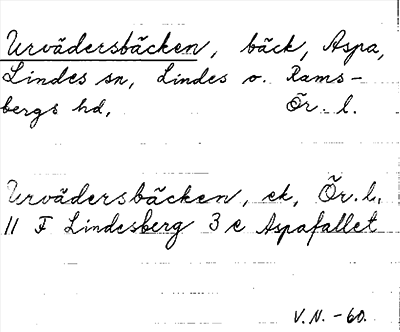 Urvädersbäcken, bäck, Aspa,
Lindes sn, Lindes o. Rams-
bergs hd, Ör. l.
Urvädersbäcken, ek, Ör. l.
11 F Lindesberg 3 e Aspafallet
V.N. -60.